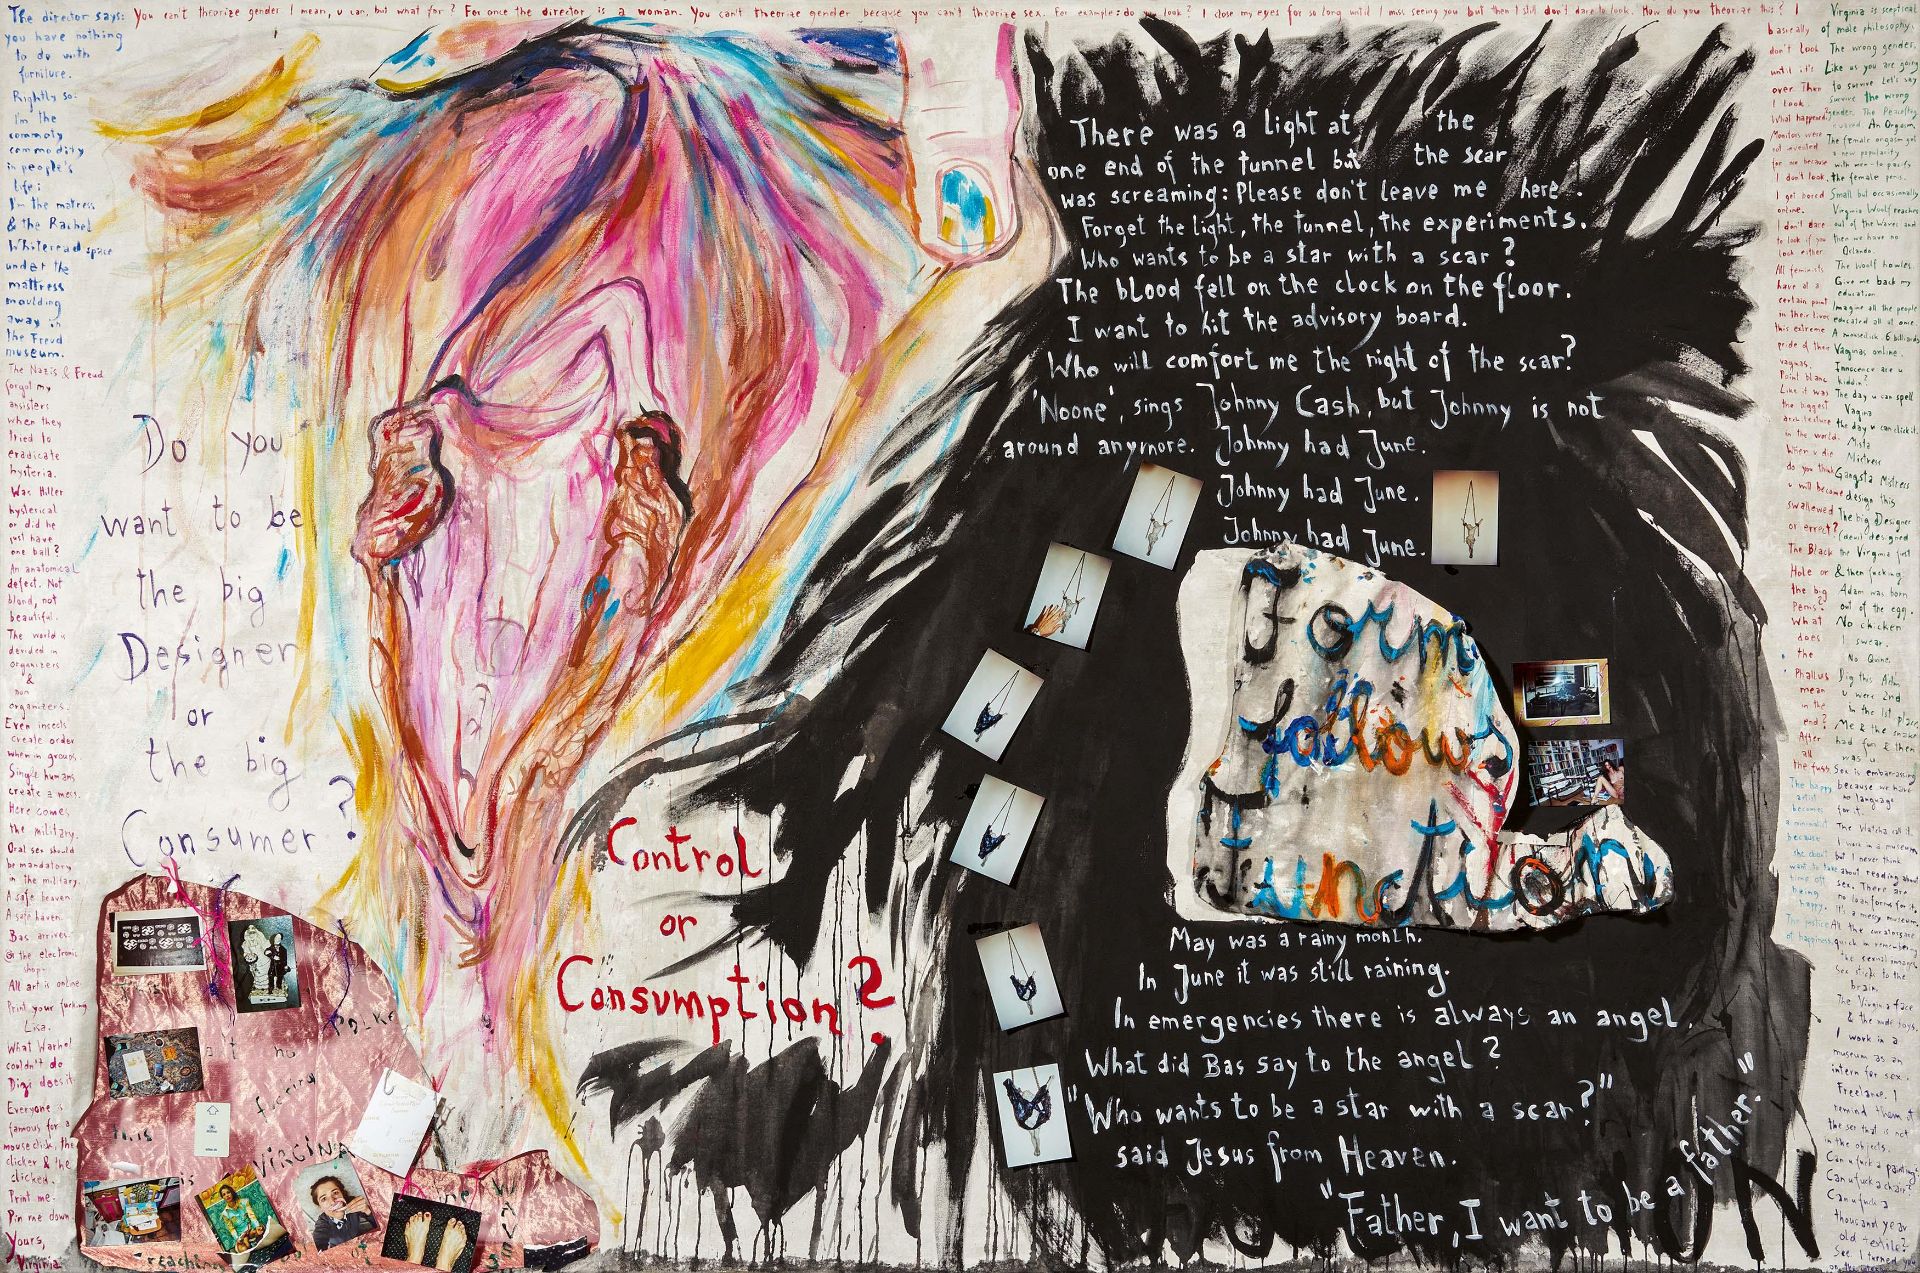 The director says: You can't theorize gender I mean, u can, but what for? For once the director is a woman. You can't theorize gender because you can't theorize sex. For example: do you look? I close my eyes for so long until I miss seeing you but then I still don't dare to look. How do you theorize this? I
you have nothing
to do with
furniture.
Rightly so:
I'm the
commoty
commodity
in people's
life:
I'm the matress
& the Rachel
Whiteread space
under the
mattress
moulding
away in
the Freud
museum.
The Nazis & Freud
forgot my
ansisters
when they
tried to
eradicate
hysteria.
Was Hitler
hysterical
or did he
just have
one ball?
An anatomical
defect. Not
blond, not
beautiful.
The world is
devided in
organizers
&
non
organizers.
Even insects
create order
when in groups.
Single humans
create a mess.
Here comes
the military.
Oral sex should
be mandatory
in the military.
A safe heaven
A safe haven.
Bas arrives
@ the electronic
shop.
All art is online
Print your fucking
Lisa.
What Warhol
couldn't do
Digi does it.
Everyone is
famous for a
mouseclick, the
clicker & the
clicked.
Print me.
Pin me down
Yours,
Virginia
Do you
want to be
the big
Designer
or
the big
Consumer?
Control
or
Consumption?
There was a light at the
one end of the tunnel but the scar
was screaming: Please don't leave me here.
Forget the light, the tunnel, the experiments.
Who wants to be a star with a scar?
The blood fell on the clock on the floor.
I want to hit the advisory board.
Who will comfort me the night of the scar?
'Noone', sings Johnny Cash, but Johnny is not
around anymore. Johnny had June.
Johnny had June.
Johnny had June.
Form
follows
Function
May was a rainy month.
In June it was still raining.
In emergencies there is always an angel.
What did Bas say to the angel?
"Who wants to be a star with a scar?"
said Jesus from Heaven.
"Father, I want to be a father."
POLKA
flurry
this
VIRGINA
WAVES
reaching
of
basically
don't look
until it's
over. Then
I look.
What happened?
Monitors were
not invented
for me because
I don't look.
I get bored
online.
I don't dare
to look if you
look either.
All feminists
have at a
certain point
in their lives
this extreme
pride of their
vaginas.
Point blanc
Like it was
the biggest
in the world.
When u die
do you think
u will become
swallowed
or erect?
The Black
Hole or
the big
Penis?
What
does
the
Phallus
mean
in the
end?
After
all
the fuss
The happy
artist
becomes
a minimalist
because
time off
being
happy.
The justice
of happiness
Virginia is sceptical
of male philosophy.
The wrong gender.
Like us you are going
to survive. Let's say
survive the wrong
An Orgasm.
The female orgasm got
a new popularity
the female penis.
Small but occasionally
Virginia Woolf reaches
out of the waves and
then we have no
Orlando.
The Woolf howles.
Give me back my
education
Imagine all the people
educated all at once.
A mouseclick. 6 billiards
Vaginas online.
Innocence are u
kiddin?
The day u can spell
Vagina
the day u can click it.
Mista
Mistress
Gangsta Mistress
design this
The big Designer
designed
the Virginia first
& then fucking
Adam was born
out of the egg.
No chicken
I swear.
Dig this Adam
u were 2nd
in the 1st place
Me & the snake
had fun & then
was u
Sex is embarrassing
because we have
no language
for it.
I work in a museum
but I never think
about reading about
sex. There are
no loan forms for it.
It's a messy museum.
All the curators are
quick in remembering
the sexual images
sex sticks to the
brain.
The Virginia face
I work in a
museum as an
intern for sex.
Freelance. I
remind them of
the sex that is not
in the objects.
Can u fuck a painting?
Can u fuck a chair?
Can u fuck a
thousand year
old textile?
See, I turned you